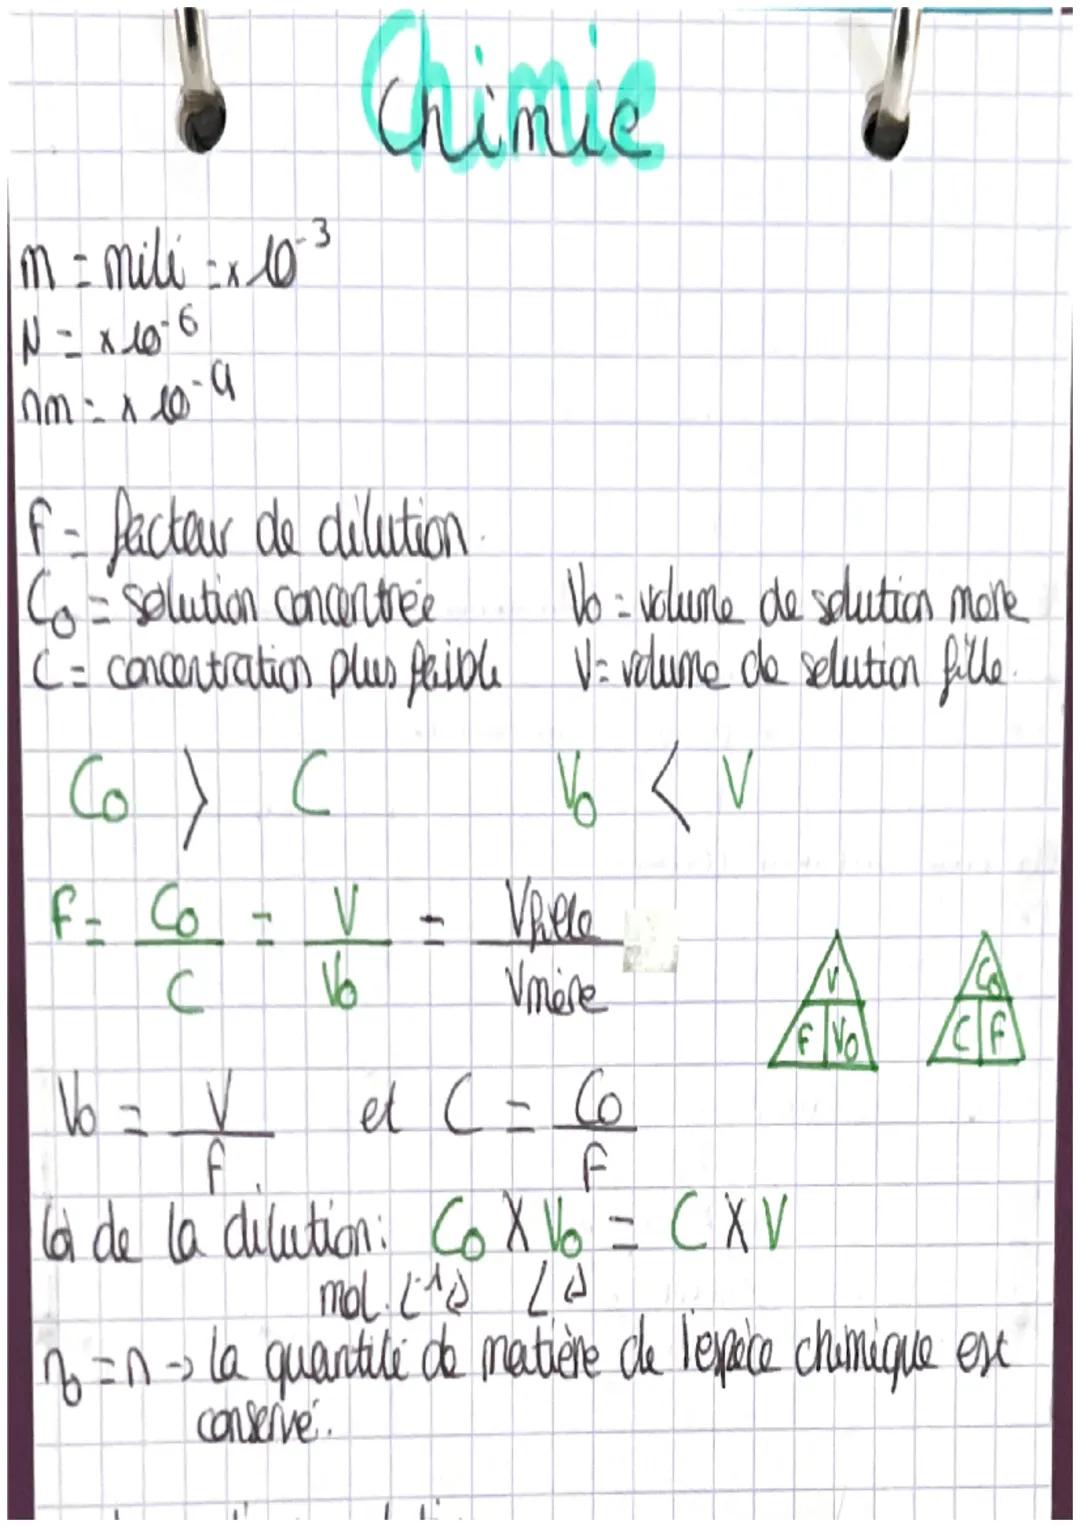 Chimie
m = mili = x 10⁻³
N = x 10⁻⁶
nm = x 10⁻⁹
F = facteur de dilution.
C₀ = solution concentrée V₀ = volume de solution mère
C = concentration plus faible V = volume de solution fille.
C₀ > C V₀ < V
F = C₀/C = V/V₀ = Vfille/Vmère
V
F V₀
C₀
C F
V₀ = V/F et C = C₀/F
loi de la dilution: C₀ X V₀ = C X V
mol.L⁻¹ L
n₀ = n → la quantité de matière de l'espèce chimique est
conservé.